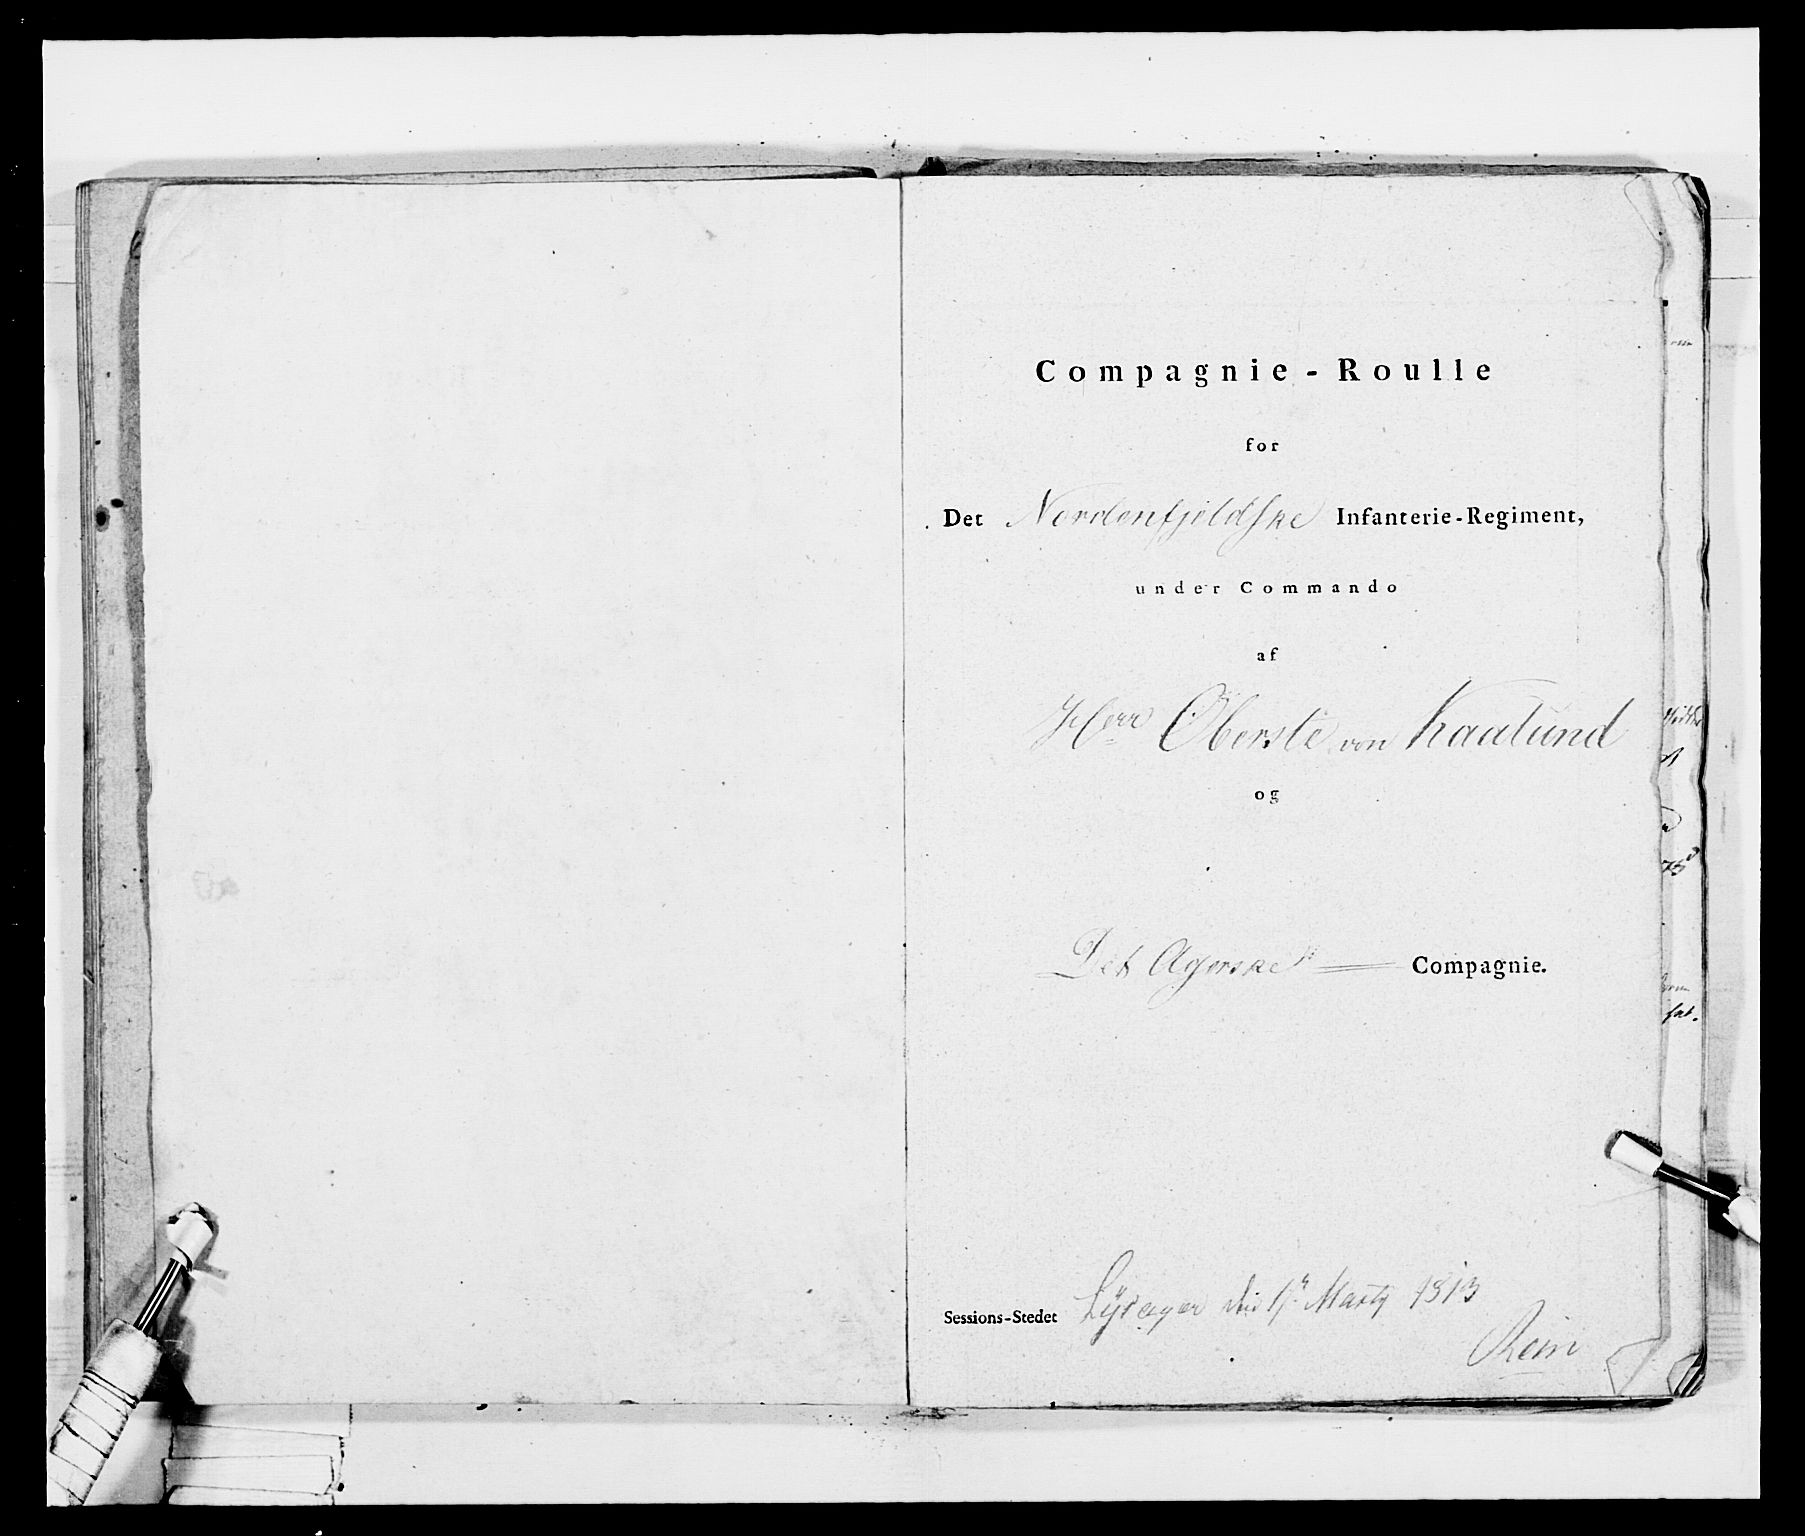 Compagnie-Roulle
for
Det Nordenfjeldske Infanterie-Regiment,
under Commando
af
Herr Oberste von Kaalund
og
Det Agerske Compagnie.
Sessions-Stedet den Marty 1813
Rein